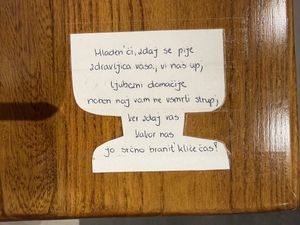 Mladen'či, zdaj se pije
zdravljica vaša, vi naš up,
ljubezni domačije
noben naj vam ne usmrti strup,
ker zdaj vas
kakor nas
jo srčno branit' kliče čas!